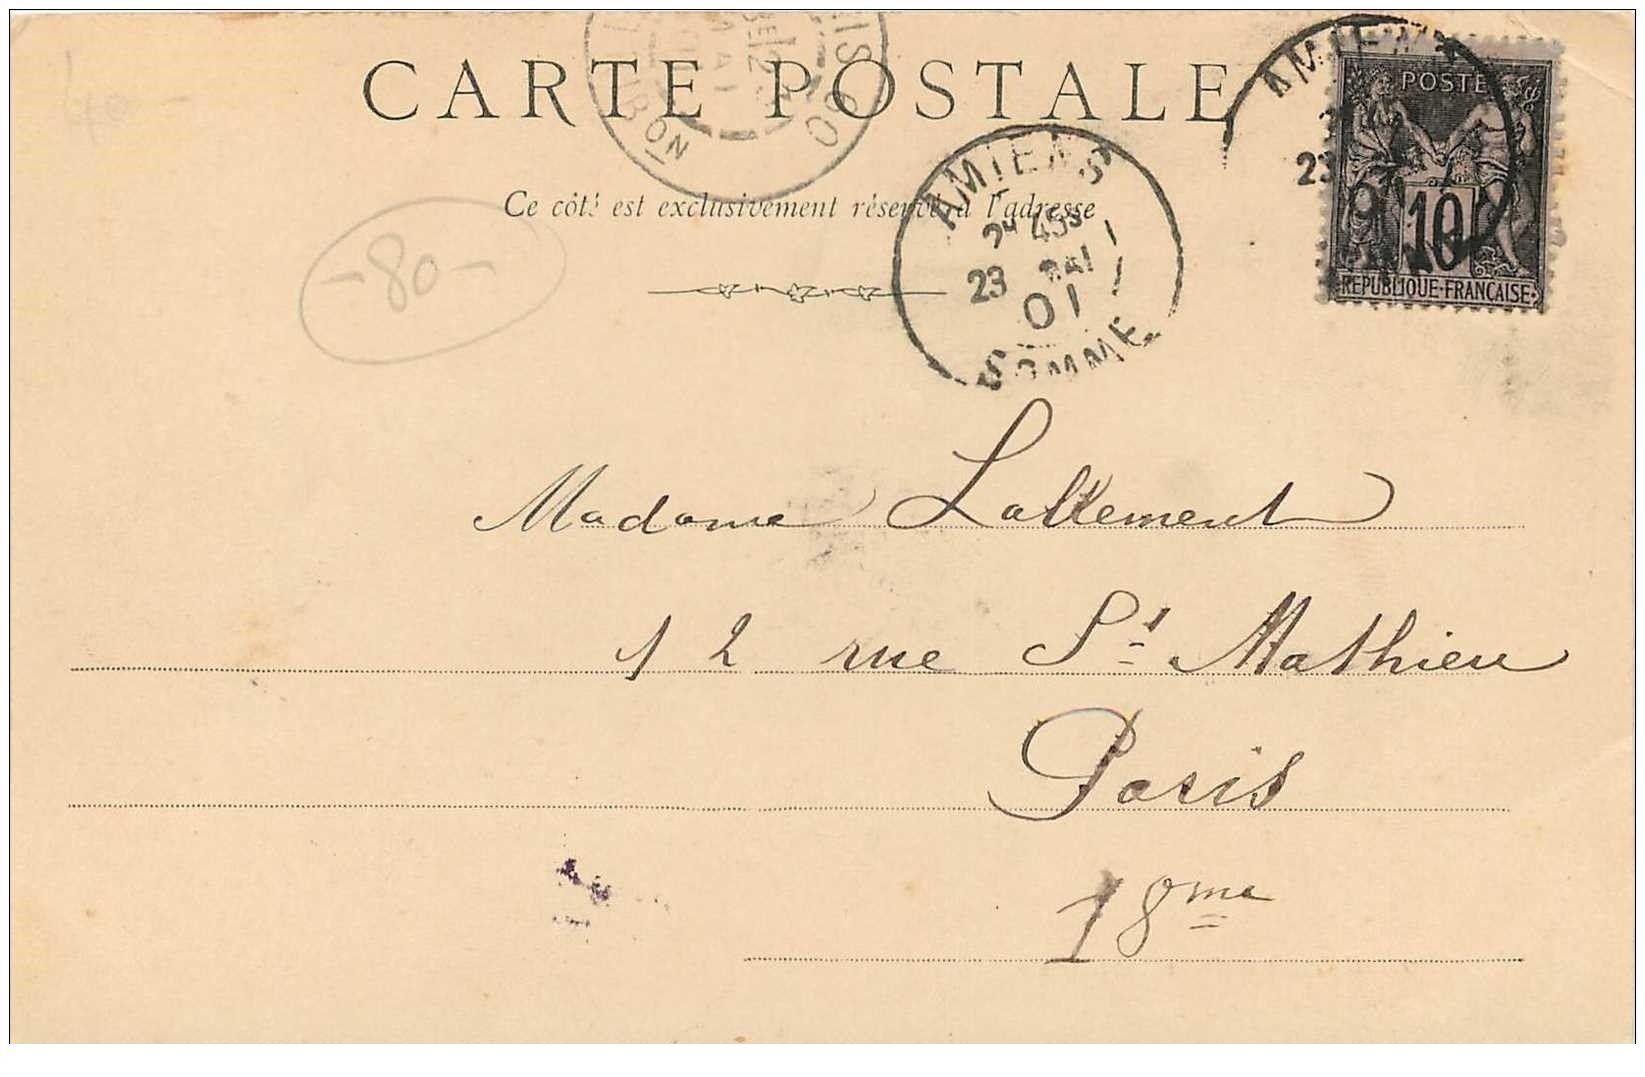 CARTE POSTALE
Ce côté est exclusivement réservé à l'adresse
40
-80-
AMIENS
2H 45S
23 MAI
01
SOMME
POSTE
10
REPUBLIQUE FRANÇAISE
Madame Lallement
12 rue St Mathieu
Paris
18me